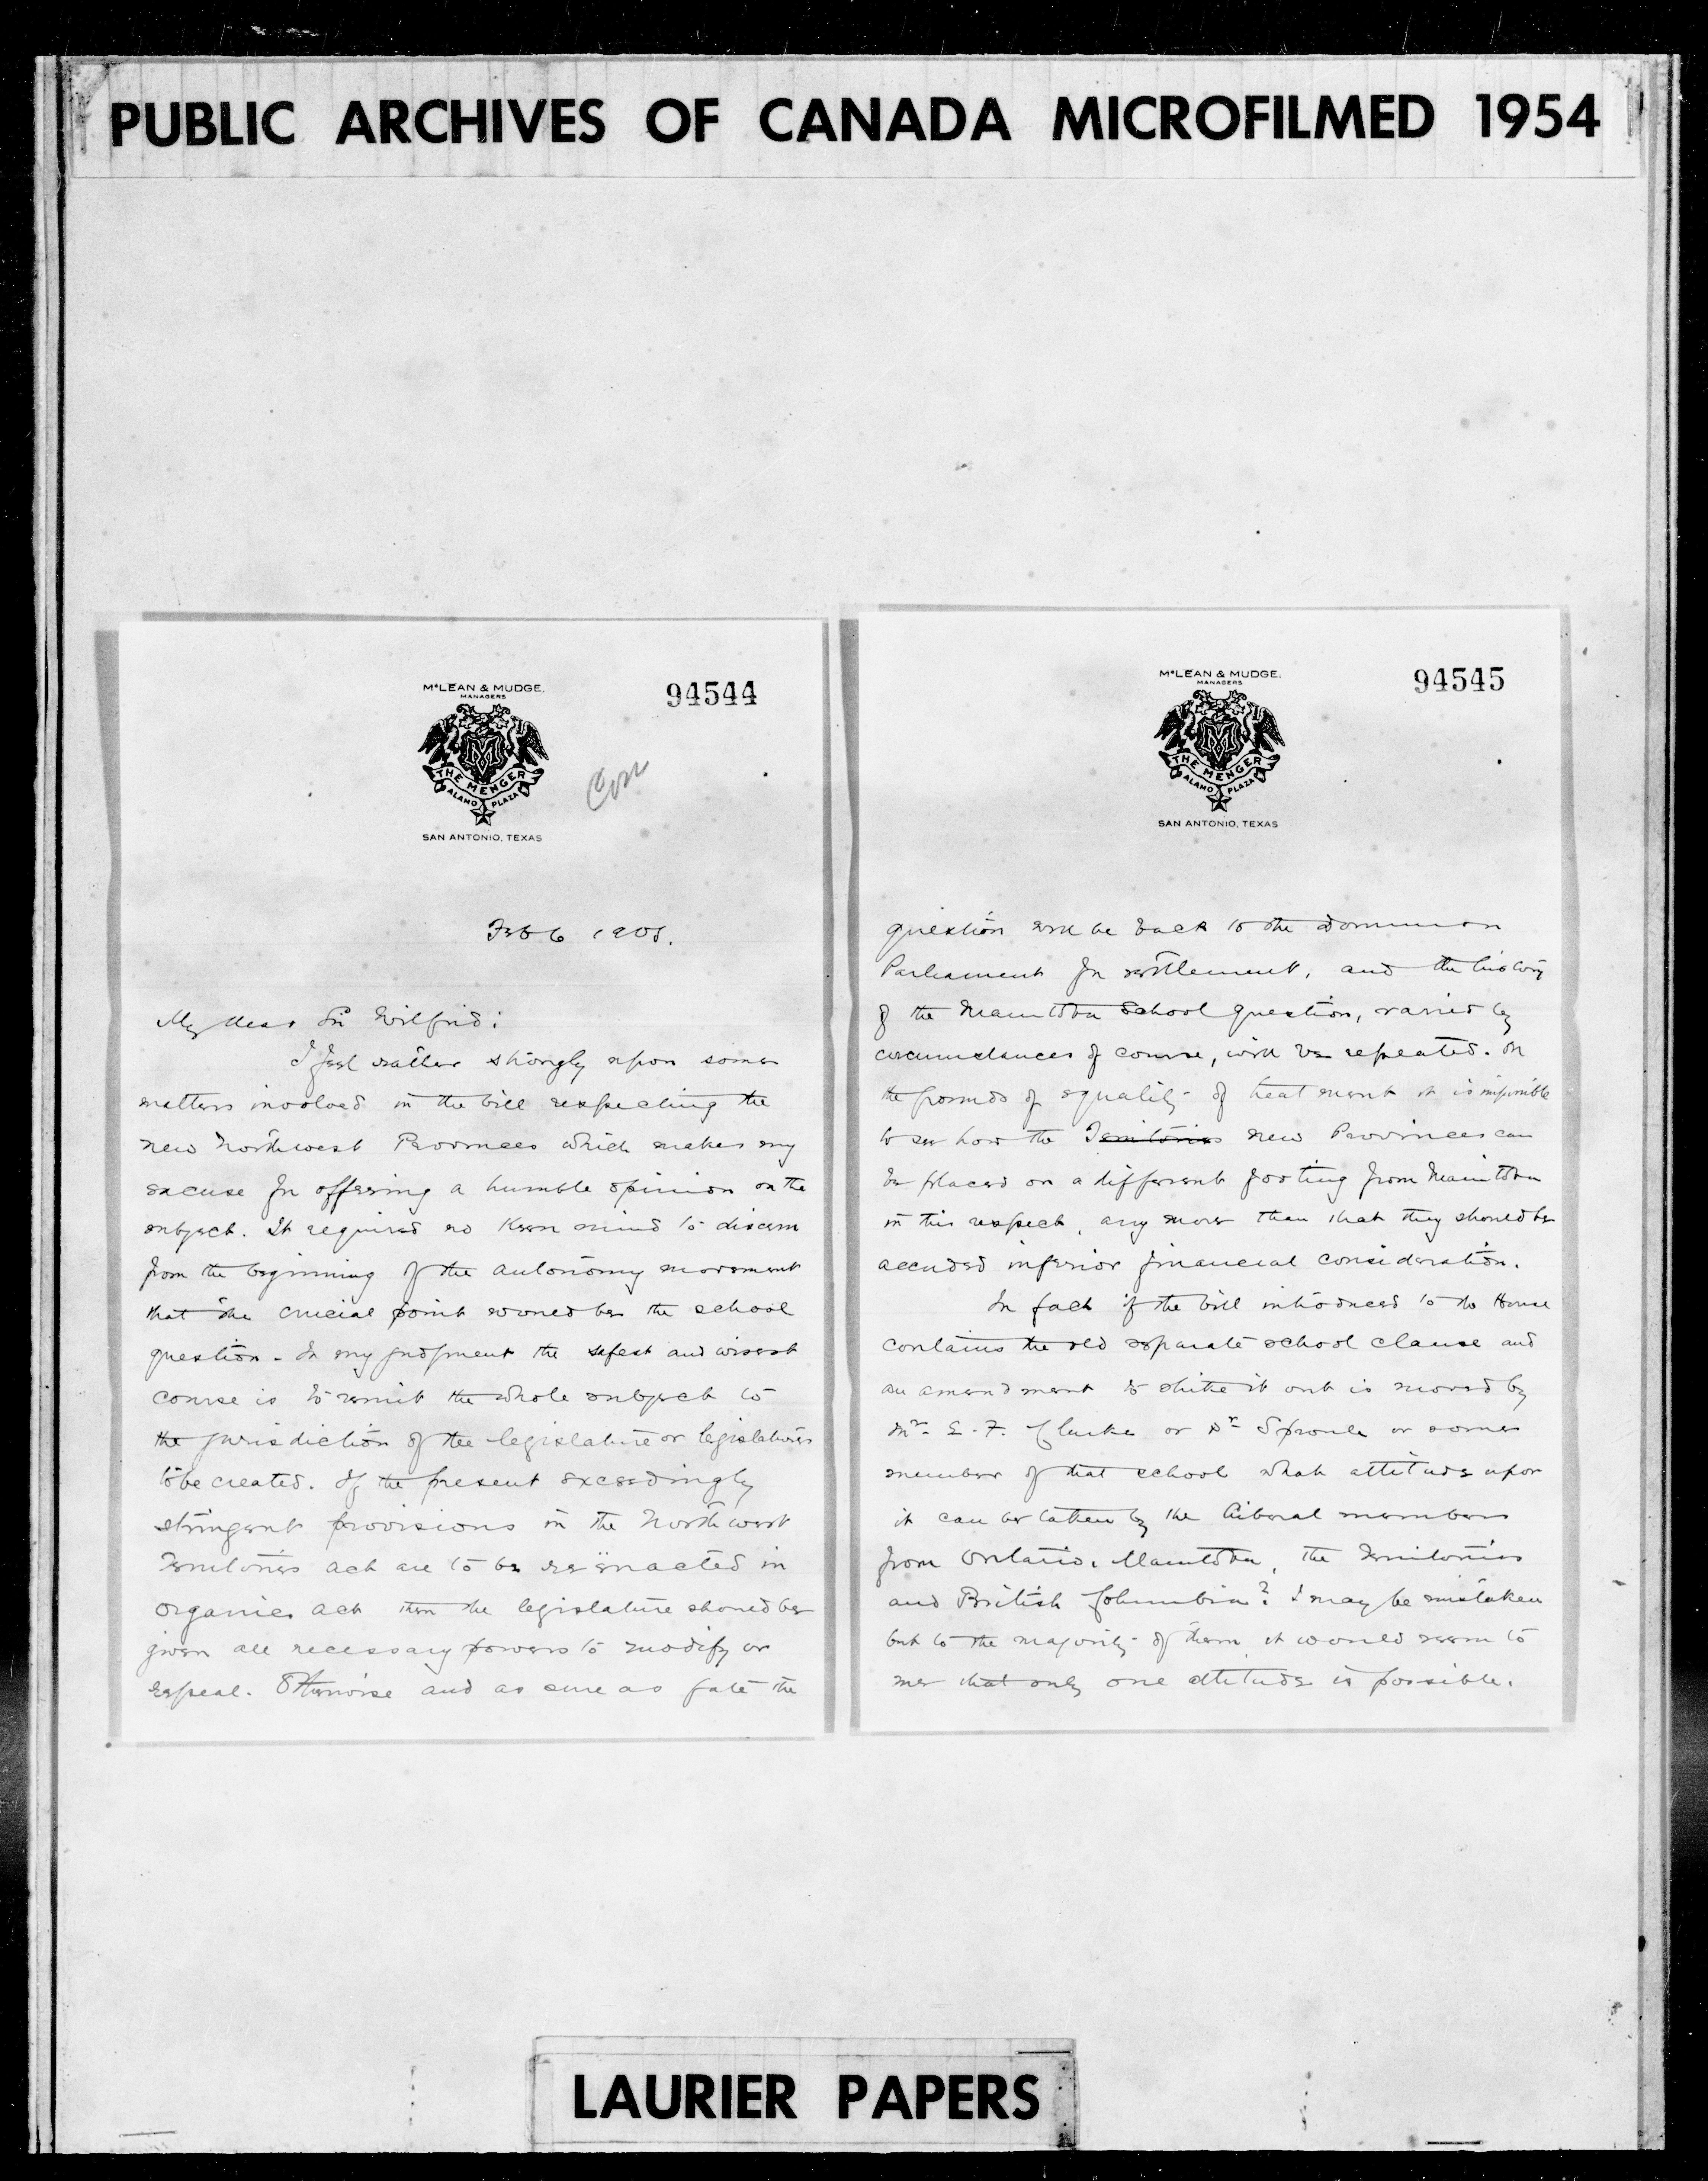 PUBLIC ARCHIVES OF CANADA MICROFILMED 1954
McLEAN & MUDGE,
MANAGERS
94544
M
THE MENGER
ALAMO PLAZA
SAN ANTONIO, TEXAS
Con
Feb 6 1905.
My dear Sir Wilfrid:
I feel rather strongly upon some
matters involved in the bill respecting the
new Northwest Provinces which makes my
excuse for offering a humble opinion on the
subject. It required no keen mind to discern
from the beginning of the autonomy movement
that the crucial point would be the school
question - In my judgment the safest and wisest
course is to remit the whole subject to
the jurisdiction of the legislature or legislatures
to be created. If the present exceedingly
stringent provisions in the Northwest
Territories act are to be reënacted in
organic act then the legislature should be
given all necessary powers to modify or
repeal. Otherwise and as sure as fate the
McLEAN & MUDGE,
MANAGERS
94545
M
THE MENGER
ALAMO PLAZA
SAN ANTONIO, TEXAS
question will be back to the Dominion
Parliament for settlement, and the history
of the Manitoba School question, varied by
circumstances of course, will be repeated. On
the grounds of equality of treatment it is impossible
to see how the Territories new Provinces can
be placed on a different footing from Manitoba
in this respect, any more than that they should be
accorded inferior financial consideration.
In fact if the bill introduced to the House
contains the old separate school clause and
an amendment to strike it out is moved by
Mr. E. F. Clarke or Dr Sproule or some
member of that school what attitude upon
it can be taken by the Liberal members
from Ontario, Manitoba, the Territories
and British Columbia? I may be mistaken
but to the majority of them it would seem to
me that only one attitude is possible.
LAURIER PAPERS